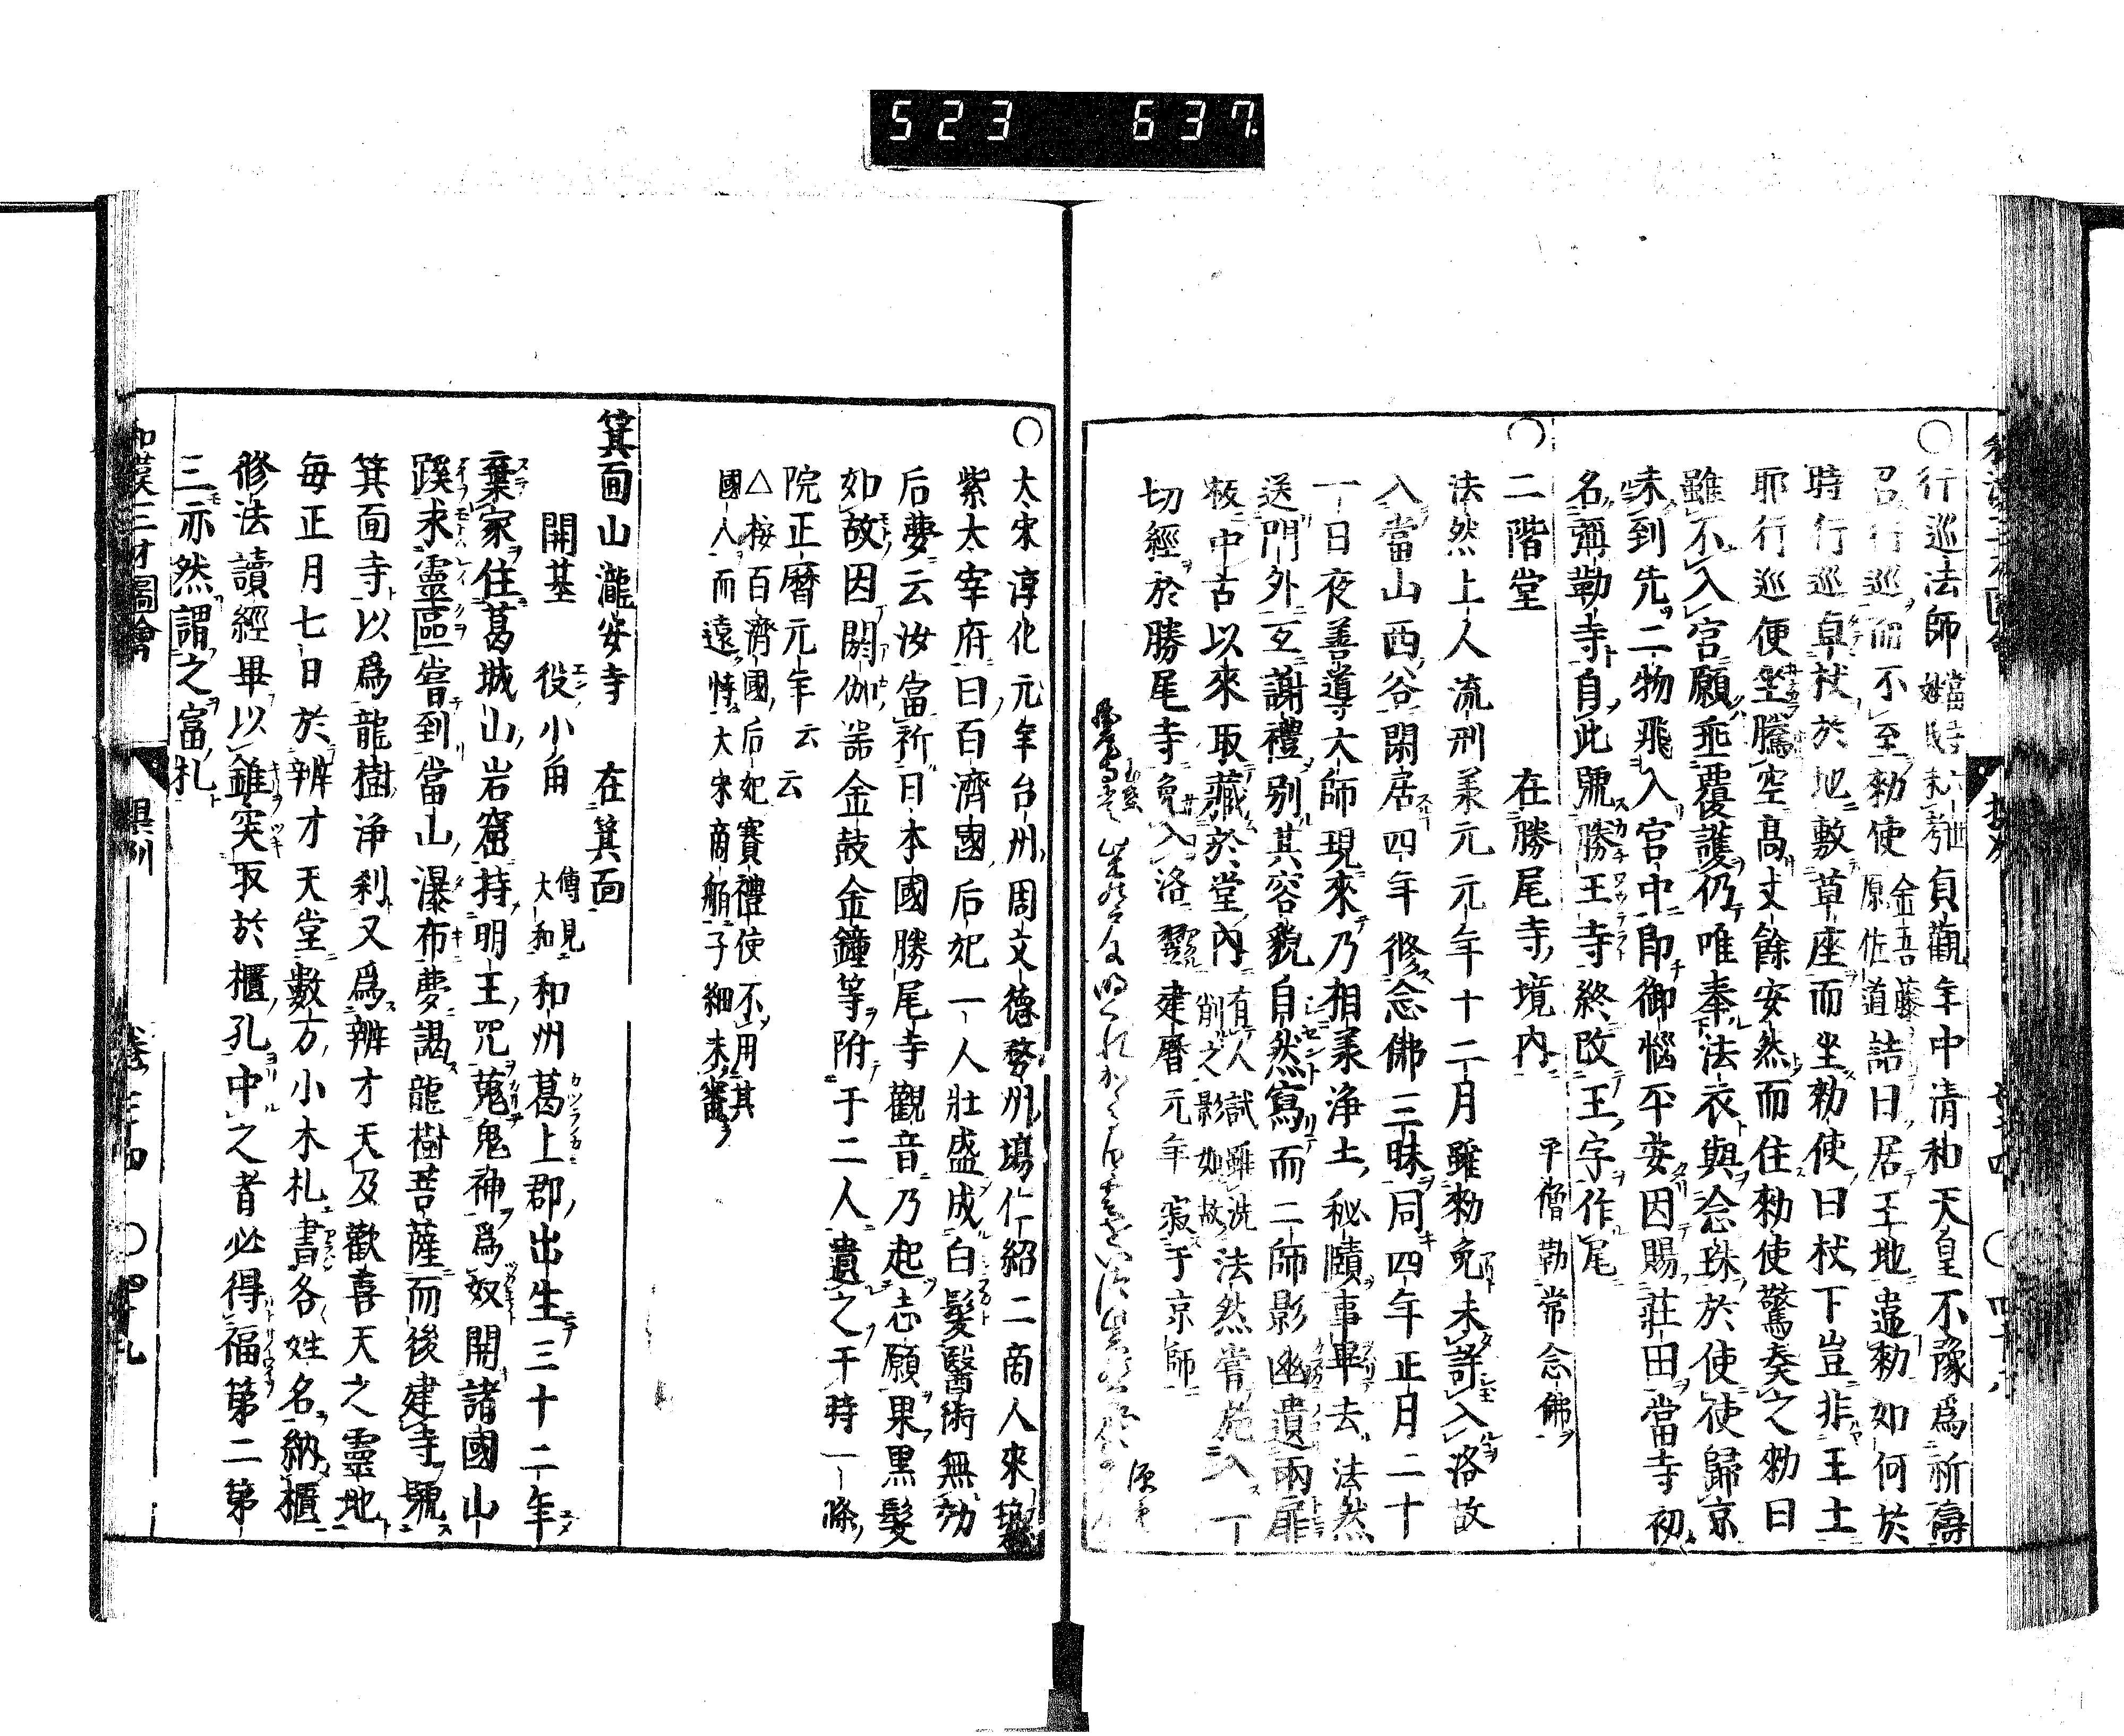 523 637
○行巡法師 當寺六世 姓氏未考 貞觀年中清和天皇不豫爲祈禱
召行巡而不至勅使 金吾藤 原佐道 詰曰居王地違勅如何於
時行巡卓杖於地敷草座而坐勅使曰杖下豈非王土
耶行巡便坐騰空高丈餘安然而住勅使驚奏之勅曰
雖不入宮願垂覆護仍唯奉法衣與念珠於使使歸京
未到先二物飛入宮中即御惱平安因賜莊田當寺初
名彌勒寺自此號勝王寺終改王字作尾
○二階堂 在勝尾寺境内 平僧勤常念佛
法然上人流刑美元元年十二月雖勅免未許入洛故
入當山西谷閑居四年修念佛三昧同四年正月二十
一日夜善導大師現來乃相羕浄土秘賾事畢去法然
送門外互謝禮別其容貌自然寫而二師影幽遺兩扉
板中古以來取藏於堂内 有人試雖洗 削之影如故 法然嘗施入一
切經於勝尾寺免入洛翌建暦元年寂于京師
○太宋淳化元年台州周文德婺州塲仁紹二商人來
紫太宰府曰百濟國后妃一人壯盛成白髮醫術無効
后夢云汝當祈日本國勝尾寺觀音乃起志願果黒髮
如故因閼伽噐金鼓金鐘等附于二人遺之于時一條
院正暦元年云云
△按百濟國后妃賽禮使不用其
國人而遠恃大宋商舶子細未審
箕面山瀧安寺 在箕面
開基 役小角 傳見 大和 和州葛上郡出生三十二年
棄家住葛城山岩窟持明王咒蒐鬼神爲奴開諸國山
蹊求靈區嘗到當山瀑布夢謁龍樹菩薩而後建寺號
箕面寺以爲龍樹浄刹又爲辨才天及歡喜天之靈地
毎正月七日於辨才天堂數万小木札書各姓名納櫃
修法讀經畢以錐突取於櫃孔中之者必得福第二第
三亦然謂之富札
和漢三才圖會